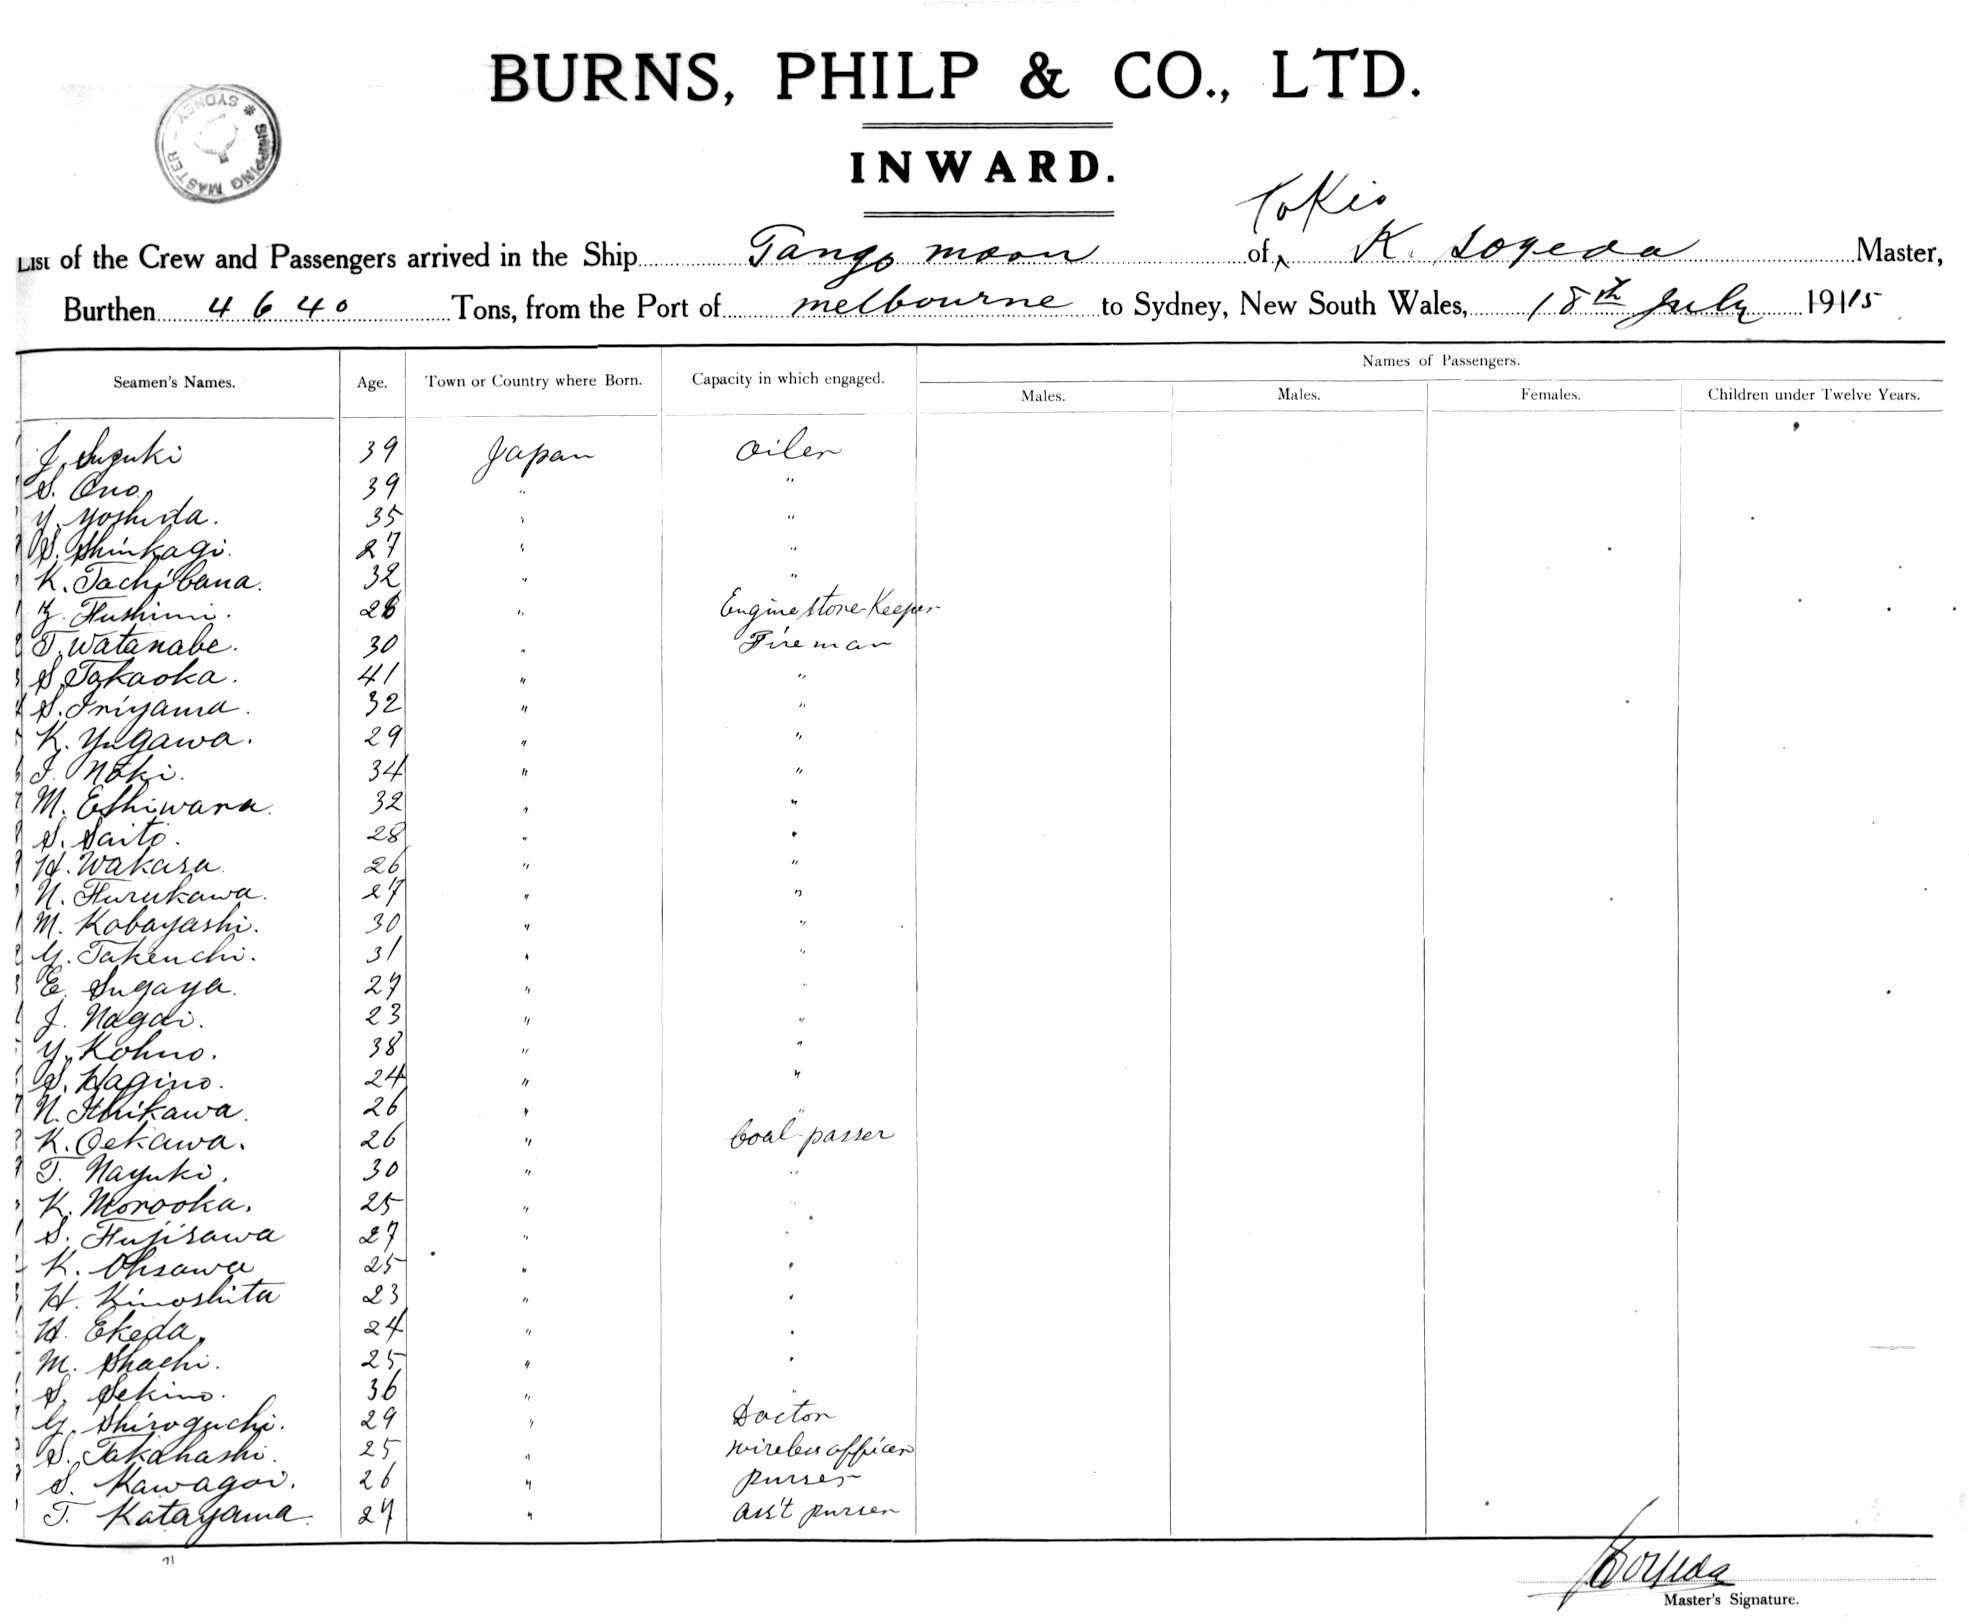 BURNS, PHILP & CO., LTD.
INWARD.
SHIPPING MASTER - SYDNEY
Tokio
LIST of the Crew and Passengers arrived in the Ship Tango maru of K. Soyeda Master,
Burthen 4640 Tons, from the Port of melbourne to Sydney, New South Wales, 18th July 1915
Names of Passengers.
Seamen's Names. Age. Town or Country where Born. Capacity in which engaged. Males. Males. Females. Children under Twelve Years.
J. Suzuki 39 Japan Oiler
S. Ono. 39 " "
Y. Yoshida. 35 " "
S. Shinkagi. 27 " "
K. Tachibana. 32 " "
Fushimi. 28 " Engine store-Keeper
T. Watanabe. 30 " Fireman
S. Takaoka. 41 " "
S. Iriyama. 32 " "
K. Yugawa. 29 " "
I. Noki. 34 " "
M. Eshiwara. 32 " "
S. Saito. 28 " "
H. Wakasa. 26 " "
N. Furukawa. 27 " "
M. Kobayashi. 30 " "
Y. Takeuchi. 31 " "
E. Sugaya. 27 " "
J. Nagai. 23 " "
Y. Kohno. 38 " "
S. Hagino. 24 " "
N. Ishikawa. 26 " "
K. Oekawa. 26 " Coal-passer
T. Nayuki. 30 " "
K. Morooka. 25 " "
S. Fujisawa 27 " "
K. Ohsawa 25 " "
H. Kinoshita 23 " "
H. Ekeda. 24 " "
M. Shachi. 25 " "
S. Sekino. 36 " "
Y. Shiroguchi. 29 " Doctor
S. Takahashi. 25 " wireless officer
S. Kawagoi. 26 " purser
T. Katayama. 27 " ass't purser
Soyeda
Master's Signature.